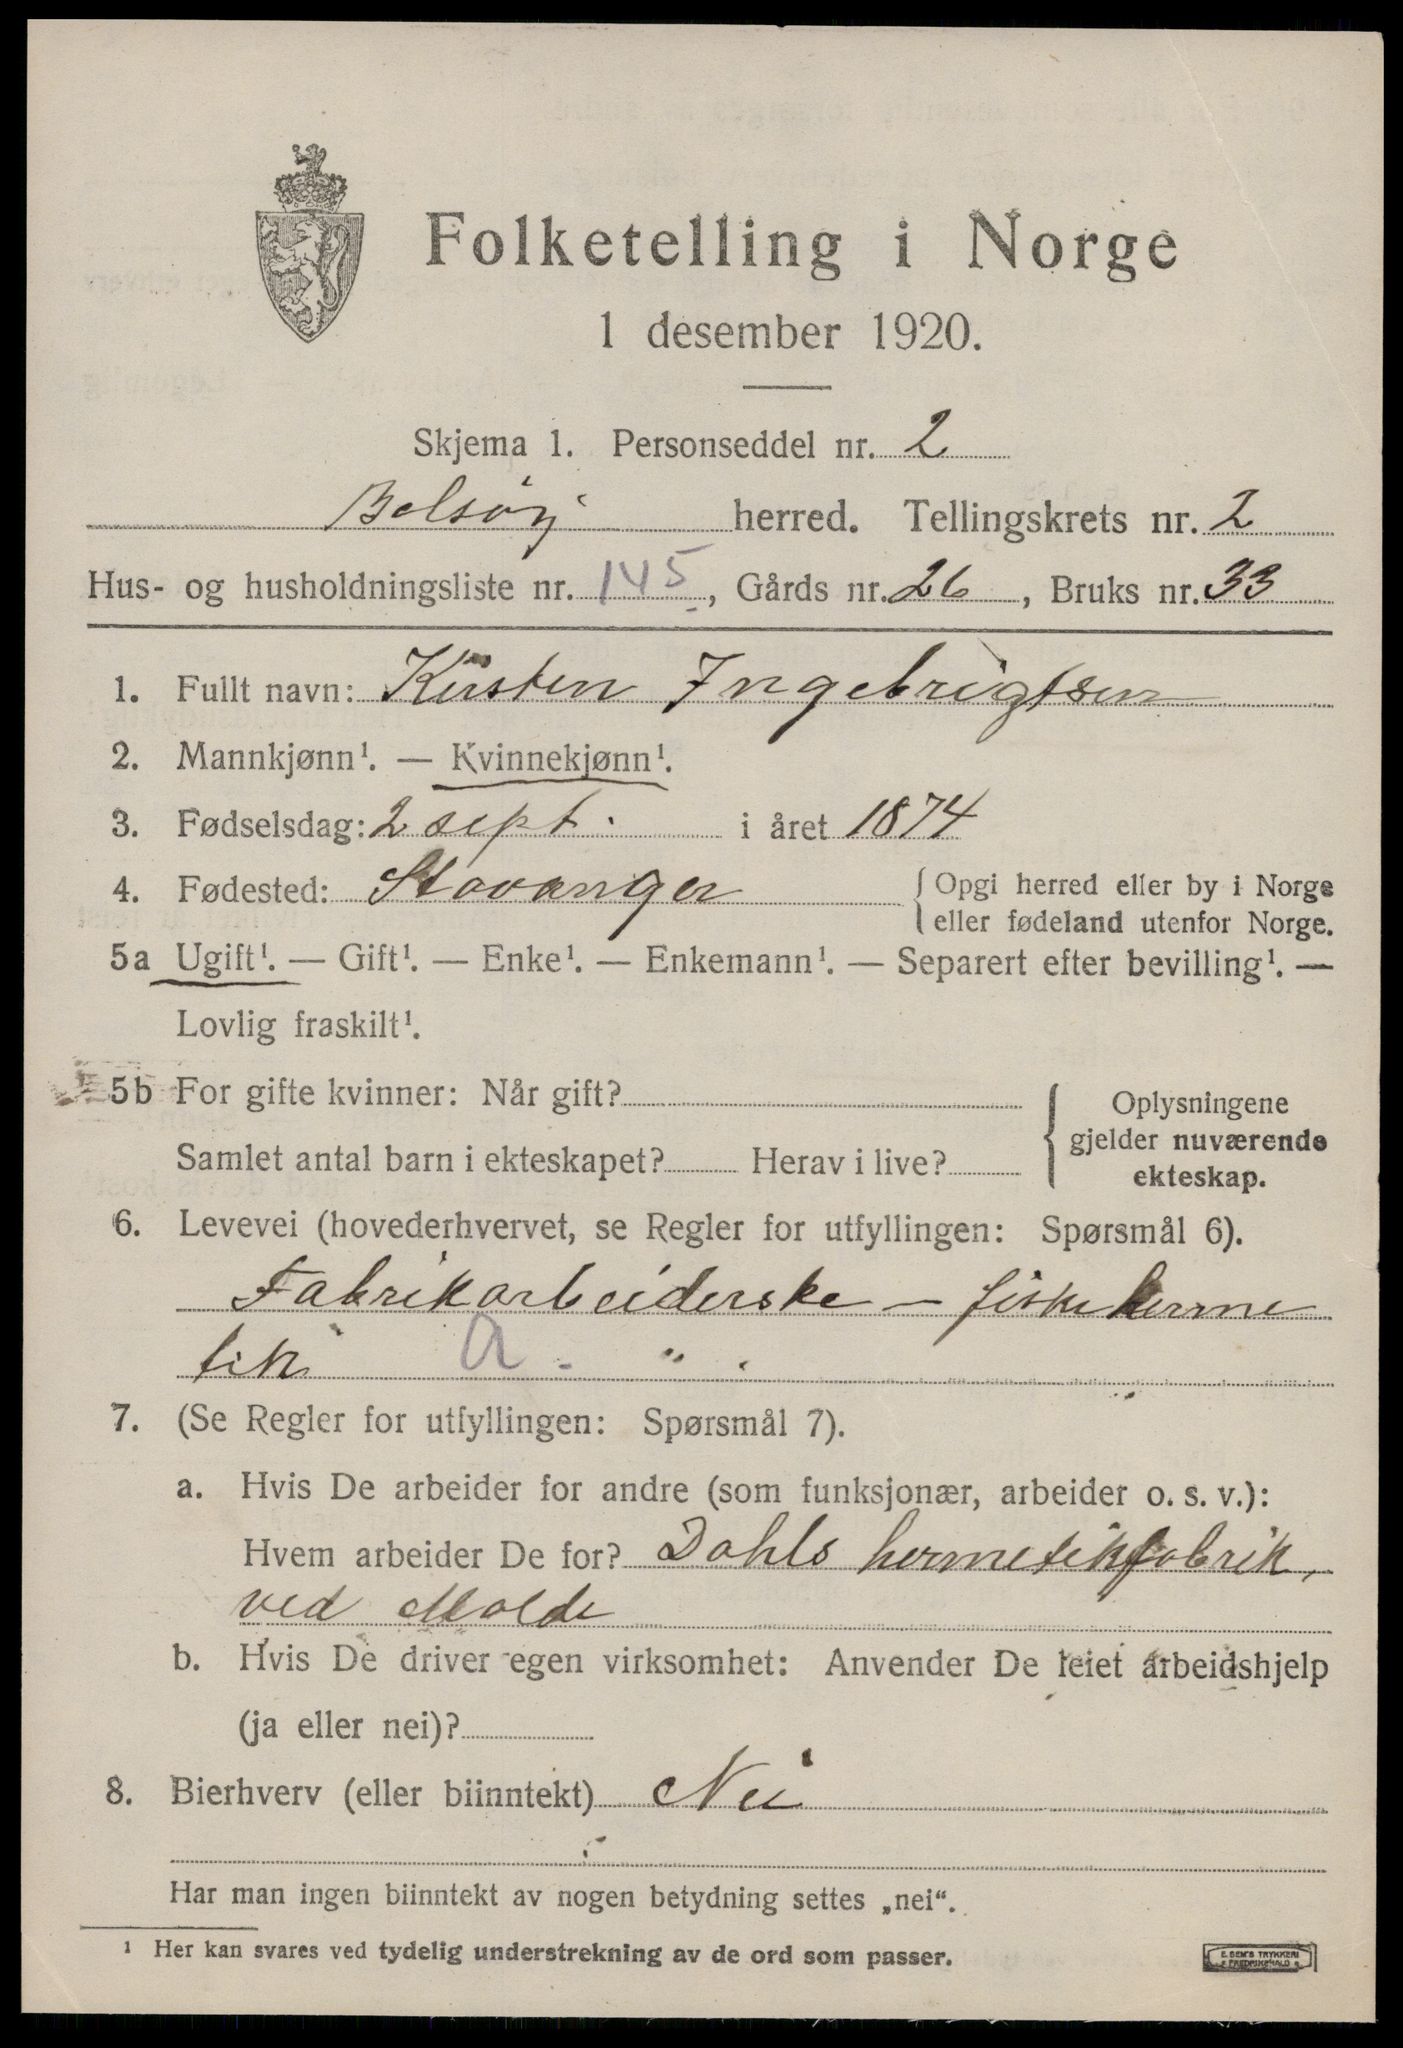 Folketelling i Norge
1 desember 1920.
Skjema 1. Personseddel nr. 2
Bolsøy herred. Tellingskrets nr. 2
Hus- og husholdningsliste nr. 145, Gårds nr. 26, Bruks nr. 33
1. Fullt navn: Kirsten Ingebrigtsen
2. Mannkjønn¹. — Kvinnekjønn¹.
3. Fødselsdag: 2 sept. i året 1874
4. Fødested: Stavanger { Opgi herred eller by i Norge
eller fødeland utenfor Norge.
5a Ugift¹. — Gift¹. — Enke¹. — Enkemann¹. — Separert efter bevilling¹. —
Lovlig fraskilt¹.
5b For gifte kvinner: Når gift? { Oplysningene
gjelder nuværende
Samlet antal barn i ekteskapet? Herav i live? ekteskap.
6. Levevei (hovederhvervet, se Regler for utfyllingen: Spørsmål 6).
Fabrikarbeiderske – fiskeherme
tik a. " .
7. (Se Regler for utfyllingen: Spørsmål 7).
a. Hvis De arbeider for andre (som funksjonær, arbeider o. s. v.):
Hvem arbeider De for? Dahls hermetikfabrik,
ved Molde
b. Hvis De driver egen virksomhet: Anvender De leiet arbeidshjelp
(ja eller nei)?
8. Bierhverv (eller biinntekt) Nei
Har man ingen biinntekt av nogen betydning settes „nei“.
¹ Her kan svares ved tydelig understrekning av de ord som passer.
E. SEM'S TRYKKERI
FREDRIKSHALD